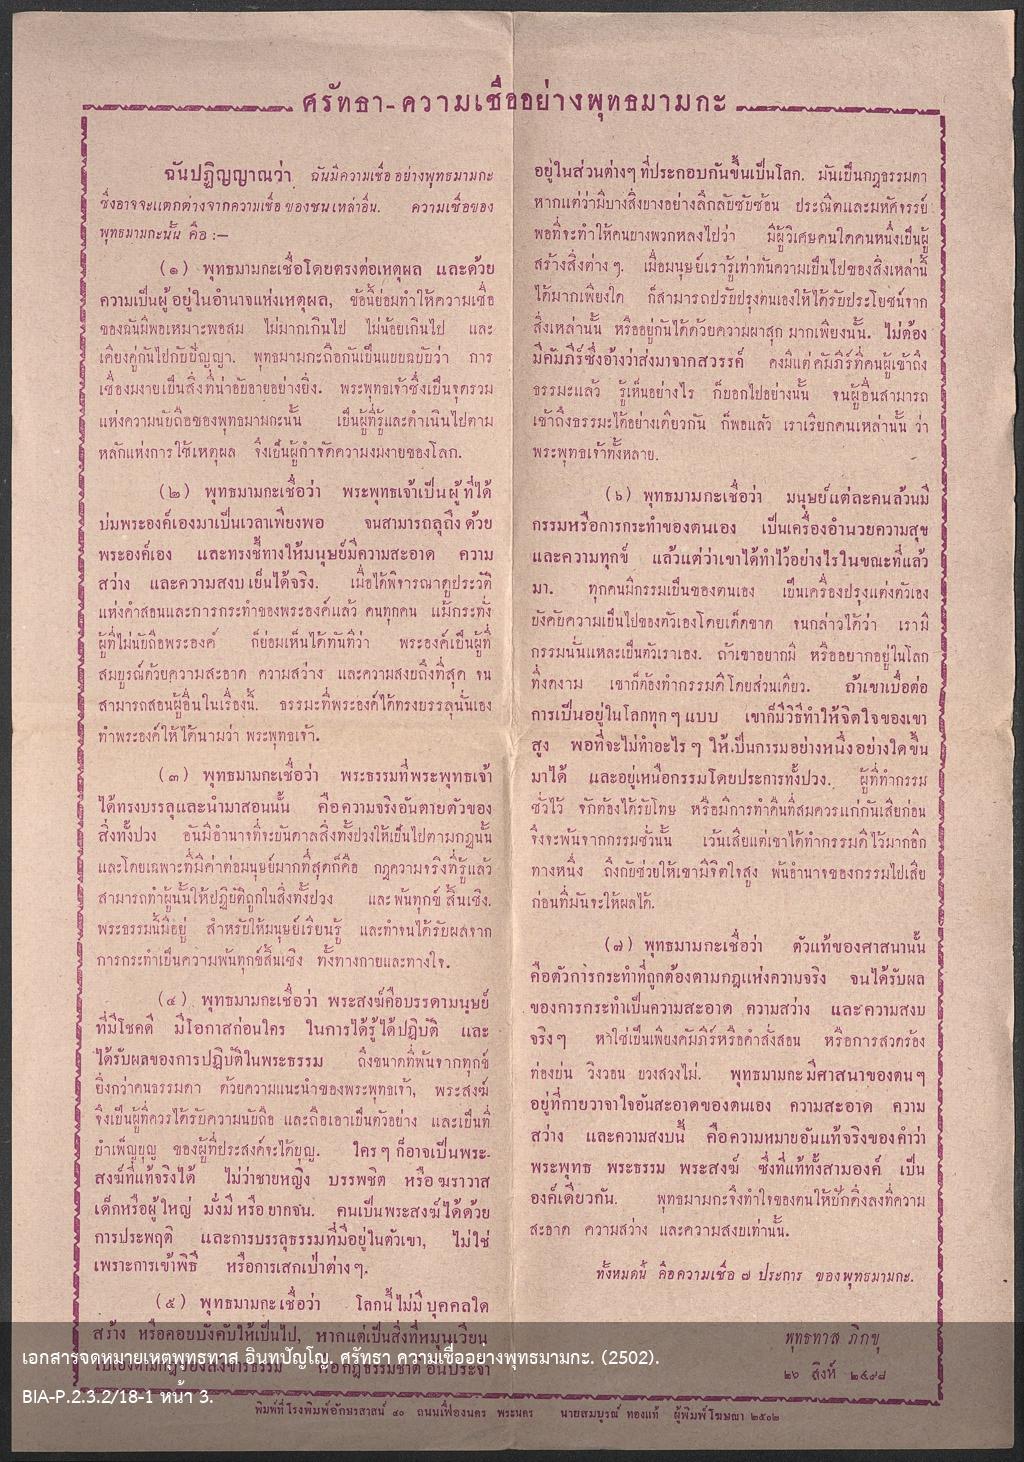 ศรัทธา-ความเชื่ออย่างพุทธมามกะ
ฉันปฏิญญาณว่า ฉันมีความเชื่อ อย่างพุทธมามกะ
ซึ่งอาจจะแตกต่างจากความเชื่อ ของชนเหล่าอื่น. ความเชื่อของ
พุทธมามกะนั้น คือ :—
(๑) พุทธมามกะเชื่อโดยตรงต่อเหตุผล และด้วย
ความเป็นผู้อยู่ในอำนาจแห่งเหตุผล, ข้อนี้ย่อมทำให้ความเชื่อ
ของฉันมีพอเหมาะพอสม ไม่มากเกินไป ไม่น้อยเกินไป และ
เคียงคู่กันไปกับปัญญา. พุทธมามกะถือกันเป็นแบบฉบับว่า การ
เชื่องมงายเป็นสิ่งที่น่าอับอายอย่างยิ่ง. พระพุทธเจ้าซึ่งเป็นจุดรวม
แห่งความนับถือของพุทธมามกะนั้น เป็นผู้ที่รู้และดำเนินไปตาม
หลักแห่งการใช้เหตุผล จึงเป็นผู้กำจัดความงมงายของโลก.
(๒) พุทธมามกะเชื่อว่า พระพุทธเจ้าเป็นผู้ที่ได้
บ่มพระองค์เองมาเป็นเวลาเพียงพอ จนสามารถลุถึง ด้วย
พระองค์เอง และทรงชี้ทางให้มนุษย์มีความสะอาด ความ
สว่าง และความสงบเย็นได้จริง. เมื่อได้พิจารณาดูประวัติ
แห่งคำสอนและการกระทำของพระองค์แล้ว คนทุกคน แม้กระทั่ง
ผู้ที่ไม่นับถือพระองค์ ก็ย่อมเห็นได้ทันทีว่า พระองค์เป็นผู้ที่
สมบูรณ์ด้วยความสะอาด ความสว่าง และความสงบถึงที่สุด จน
สามารถสอนผู้อื่นในเรื่องนี้. ธรรมะที่พระองค์ได้ทรงบรรลุนั่นเอง
ทำพระองค์ให้ได้นามว่า พระพุทธเจ้า.
(๓) พุทธมามกะเชื่อว่า พระธรรมที่พระพุทธเจ้า
ได้ทรงบรรลุและนำมาสอนนั้น คือความจริงอันตายตัวของ
สิ่งทั้งปวง อันมีอำนาจที่จะบันดาลสิ่งทั้งปวงให้เป็นไปตามกฎนั้น
และโดยเฉพาะที่มีค่าต่อมนุษย์มากที่สุดก็คือ กฎความจริงที่รู้แล้ว
สามารถทำผู้นั้นให้ปฏิบัติถูกในสิ่งทั้งปวง และพ้นทุกข์ สิ้นเชิง.
พระธรรมนี้มีอยู่ สำหรับให้มนุษย์เรียนรู้ และทำจนได้รับผลจาก
การกระทำเป็นความพ้นทุกข์สิ้นเชิง ทั้งทางกายและทางใจ.
(๔) พุทธมามกะเชื่อว่า พระสงฆ์คือบรรดามนุษย์
ที่มีโชคดี มีโอกาสก่อนใคร ในการได้รู้ ได้ปฏิบัติ และ
ได้รับผลของการปฏิบัติในพระธรรม ถึงขนาดที่พ้นจากทุกข์
ยิ่งกว่าคนธรรมดา ด้วยความแนะนำของพระพุทธเจ้า, พระสงฆ์
จึงเป็นผู้ที่ควรได้รับความนับถือ และถือเอาเป็นตัวอย่าง และเป็นที่
บำเพ็ญบุญ ของผู้ที่ประสงค์จะได้บุญ. ใครๆ ก็อาจเป็นพระ-
สงฆ์ที่แท้จริงได้ ไม่ว่าชายหญิง บรรพชิต หรือ ฆราวาส
เด็กหรือผู้ใหญ่ มั่งมี หรือ ยากจน. คนเป็นพระสงฆ์ได้ด้วย
การประพฤติ และการบรรลุธรรมที่มีอยู่ในตัวเขา, ไม่ใช่
เพราะการเข้าพิธี หรือการเสกเป่าต่างๆ.
(๕) พุทธมามกะเชื่อว่า โลกนี้ไม่มีบุคคลใด
สร้าง หรือคอยบังคับให้เป็นไป, หากแต่เป็นสิ่งที่หมุนเวียน
อยู่ในส่วนต่างๆ ที่ประกอบกันขึ้นเป็นโลก. มันเป็นกฎธรรมดา
หากแต่ว่ามีบางสิ่งบางอย่างลึกลับซับซ้อน ประณีตและมหัศจรรย์
พอที่จะทำให้คนบางพวกหลงไปว่า มีผู้วิเศษคนใดคนหนึ่งเป็นผู้
สร้างสิ่งต่างๆ. เมื่อมนุษย์เรารู้เท่าทันความเป็นไปของสิ่งเหล่านี้
ได้มากเพียงใด ก็สามารถปรับปรุงตนเองให้ได้รับประโยชน์จาก
สิ่งเหล่านั้น หรืออยู่กันได้ด้วยความผาสุก มากเพียงนั้น. ไม่ต้อง
มีคัมภีร์ซึ่งอ้างว่าส่งมาจากสวรรค์ คงมีแต่คัมภีร์ที่คนผู้เข้าถึง
ธรรมะแล้ว รู้เห็นอย่างไร ก็บอกไปอย่างนั้น จนผู้อื่นสามารถ
เข้าถึงธรรมะได้อย่างเดียวกัน ก็พอแล้ว เราเรียกคนเหล่านั้น ว่า
พระพุทธเจ้าทั้งหลาย.
(๖) พุทธมามกะเชื่อว่า มนุษย์แต่ละคนล้วนมี
กรรมหรือการกระทำของตนเอง เป็นเครื่องอำนวยความสุข
และความทุกข์ แล้วแต่ว่าเขาได้ทำไว้อย่างไรในขณะที่แล้ว
มา. ทุกคนมีกรรมเป็นของตนเอง เป็นเครื่องปรุงแต่งตัวเอง
บังคับความเป็นไปของตัวเองโดยเด็ดขาด จนกล่าวได้ว่า เรามี
กรรมนั่นแหละเป็นตัวเราเอง. ถ้าเขาอยากมี หรืออยากอยู่ในโลก
ที่งดงาม เขาก็ต้องทำกรรมดีโดยส่วนเดียว. ถ้าเขาเบื่อต่อ
การเป็นอยู่ในโลกทุกๆ แบบ เขาก็มีวิธีทำให้จิตใจของเขา
สูง พอที่จะไม่ทำอะไรๆ ให้เป็นกรรมอย่างหนึ่งอย่างใดขึ้น
มาได้ และอยู่เหนือกรรมโดยประการทั้งปวง. ผู้ที่ทำกรรม
ชั่วไว้ จักต้องได้รับโทษ หรือมีการทำคืนที่สมควรแก่กันเสียก่อน
จึงจะพ้นจากกรรมชั่วนั้น เว้นเสียแต่เขาได้ทำกรรมดีไว้มากอีก
ทางหนึ่ง ถึงกับช่วยให้เขามีจิตใจสูง พ้นอำนาจของกรรมไปเสีย
ก่อนที่มันจะให้ผลได้.
(๗) พุทธมามกะเชื่อว่า ตัวแท้ของศาสนานั้น
คือตัวการกระทำที่ถูกต้องตามกฎแห่งความจริง จนได้รับผล
ของการกระทำเป็นความสะอาด ความสว่าง และความสงบ
จริงๆ หาใช่เป็นเพียงคัมภีร์หรือคำสั่งสอน หรือการสวดร้อง
ท่องบ่น วิงวอน บวงสรวงไม่. พุทธมามกะมีศาสนาของตนๆ
อยู่ที่กายวาจาใจอันสะอาดของตนเอง ความสะอาด ความ
สว่าง และความสงบนี้ คือความหมายอันแท้จริงของคำว่า
พระพุทธ พระธรรม พระสงฆ์ ซึ่งที่แท้ทั้งสามองค์ เป็น
องค์เดียวกัน. พุทธมามกะจึงทำใจของตนให้ปักดิ่งลงที่ความ
สะอาด ความสว่าง และความสงบเท่านั้น.
ทั้งหมดนี้ คือความเชื่อ ๗ ประการ ของพุทธมามกะ.
พุทธทาส ภิกขุ
๒๖ สิงห์ ๒๔๙๘
เอกสารจดหมายเหตุพุทธทาส อินทปัญโญ. ศรัทธา ความเชื่ออย่างพุทธมามกะ. (2502).
BIA-P.2.3.2/18-1 หน้า 3.
พิมพ์ที่ โรงพิมพ์อักษรสาสน์ ๔๐ ถนนเฟื่องนคร พระนคร นายสมบูรณ์ ทองแท้ ผู้พิมพ์โฆษณา ๒๕๐๒